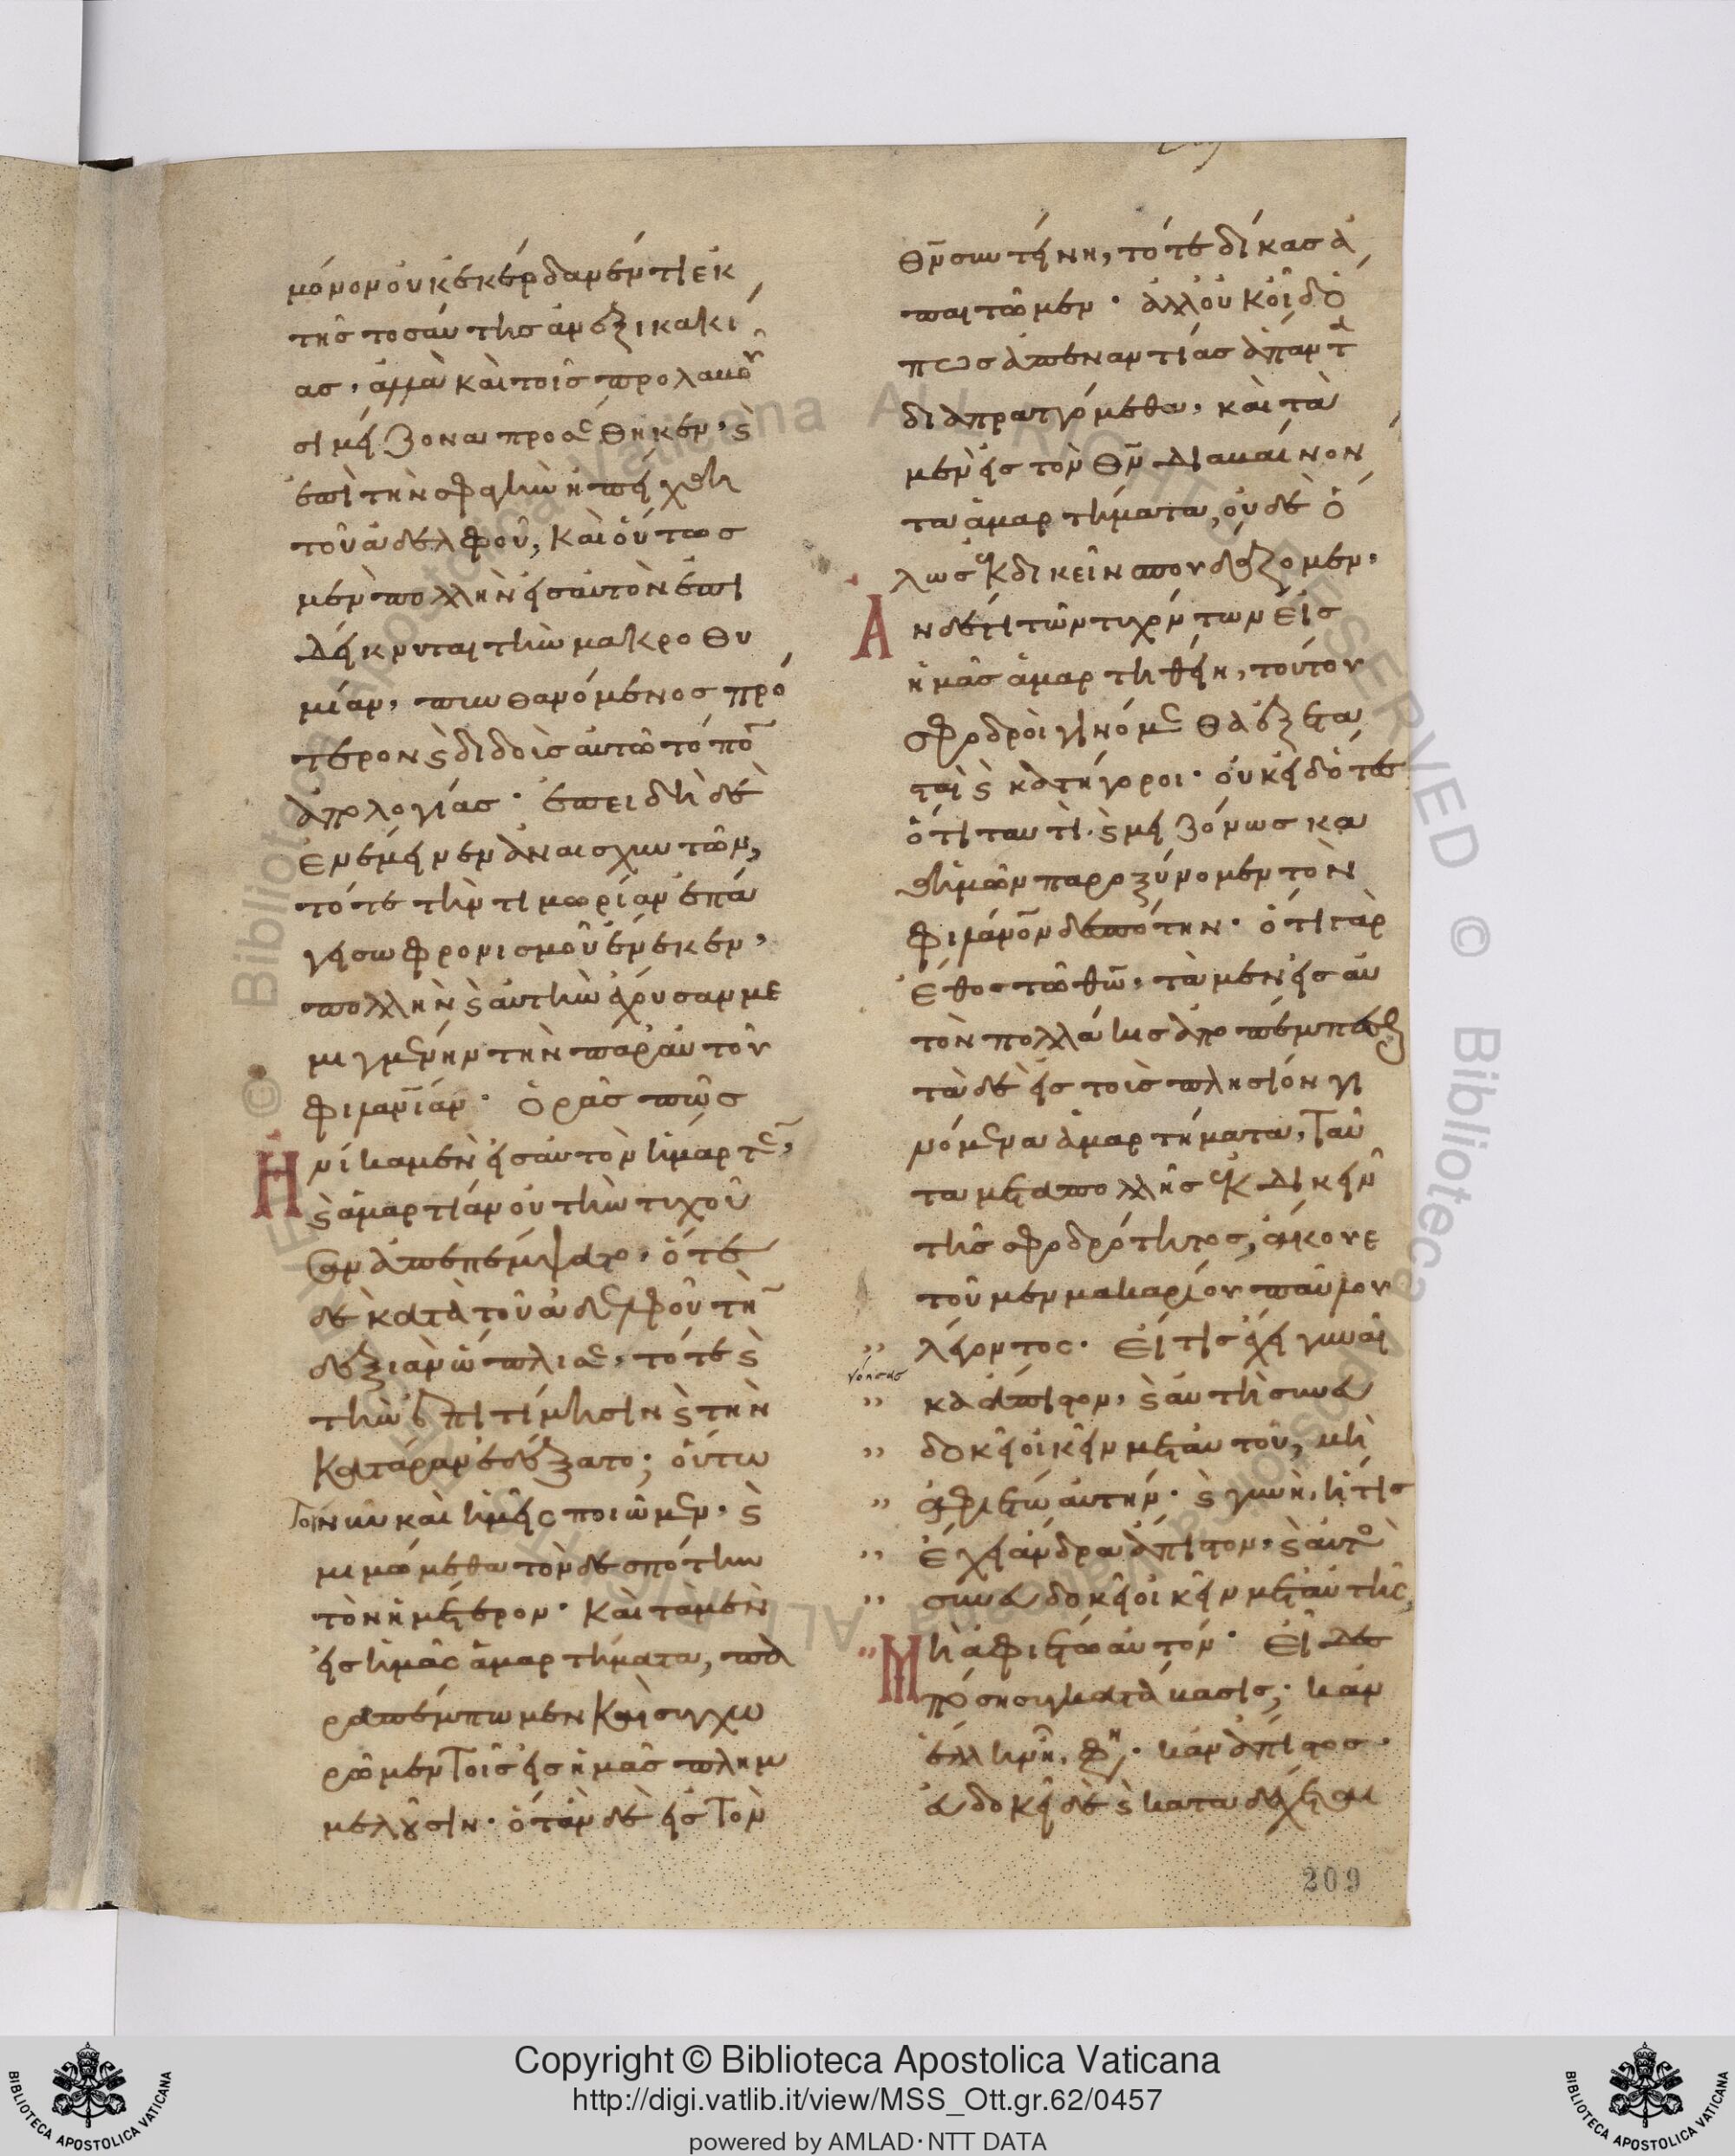 μόνον οὐκ ἐκέρδανέν τι ἐκ
τῆς τοσαύτης ἀνεξικακί
ας, ἀλλὰ καὶ τοῖς προλαβοῦ
σι μείζονα προσέθηκεν, ϛ̀
ἐπὶ τὴν σφαγὴν ἠπείχθη
τοῦ ἀδελφοῦ, καὶ οὕτως
μὲν πολλὴν εἰς αὐτὸν ἐπι
δείκνυται τὴν μακροθυ
μίαν, πυνθανόμενος πρό
τερον ϛ̀ διδοὺς αὐτῶ τόπον
ἀπολογίας· ἐπειδὴ δὲ
ἐνέμεινεν ἀναισχυντῶν,
τότε τὴν τιμωρίαν ἐπά
γει σωφρονισμοῦ ἕνεκεν,
πολλὴν ϛ̀ αὐτὴν ἔχουσαν με
μιγμένην τὴν παρ' αὐτοῦ
φιλανίαν· ὁρᾶς πῶς
Ἡνίκα μὲν εἰς αὐτὸν ἥμαρτεν,
ϛ̀ ἁμαρτίαν οὐ τὴν τυχοῦ
σαν ἀπεπέμψατο, ὅτε
δὲ κατὰ τοῦ ἀδελφοῦ τὴν
δεξιὰν ὥπλισε, τότε ϛ̀
τὴν ἐπιτίμησιν ϛ̀ τὴν
κατάραν ἐδέξατο; οὕτω
τοίνυν καὶ ἡμεῖς ποιῶμεν, ϛ̀
μιμώμεθα τὸν δεσπότην
τὸν ἡμέτερον· καὶ τὰ μὲν
εἰς ἡμᾶς ἁμαρτήματα, πα
ραπέμπωμεν καὶ συγχω
ρῶμεν τοῖς εἰς ἡμᾶς πλημ
μελοῦσιν· ὅταν δὲ εἰς τὸν
θν̄ συντείνη, τότε δίκας ἀ
παιτῶμεν· ἀλλ' οὐκ οἶδ' ὅ
πως ἀπεναντίας ἅπαντα
διαπραττόμεθα, καὶ τὰ
μὲν εἰς τὸν θν̄ διαβαίνον
τα ἁμαρτήματα, οὐδὲ ὅ
λως ἐκδικεῖν σπουδάζομεν,
Ἂν δέ τι τῶν τυχόντων εἰς
ἡμᾶς ἁμαρτηθείη, τούτου
σφοδροὶ γινόμεθα ἐξετα
σταὶ ϛ̀ κατήγοροι· οὐκ εἰδότες
ὅτι ταύτη ϛ̀ μειζόνως κα
θ' ἡμῶν παροξύνομεν τὸν
φιλάνον δεσπότην· ὅτι γὰρ
ἔθος τῶ θω̄, τὰ μὲν εἰς αὐ
τὸν πολλάκις ἀποπέμπεσθαι
τὰ δὲ εἰς τοὺς πλησίον γι
νόμενα ἁμαρτήματα, ταῦ
τα μετὰ πολλῆς ἐκδικεῖν
τῆς σφοδρότητος, ἄκουε
τοῦ μὲν μακαρίου παύλου
λέγοντος· Εἴ τις ἔχει γυναῖ
κα ἄπιστον, ϛ̀ αὐτὴ συνευ
δοκεῖ οἰκεῖν μετ' αὐτοῦ, μὴ
ἀφιέτω αὐτήν· ϛ̀ γυνὴ, ἥτις
ἔχει ἄνδρα ἄπιστον, ϛ̀ αὐτὸς
συνευδοκεῖ οἰκεῖν μετ' αὐτῆς,
Μὴ ἀφιέτω αὐτόν· Εἶδες
πόση συγκατάβασις; κἂν
ἕλλην ἦ, φη· κἂν ἄπιστος·
εὐδοκεῖ δὲ ϛ̀ καταδέχεται
209
Copyright © Biblioteca Apostolica Vaticana
http://digi.vatlib.it/view/MSS_Ott.gr.62/0457
powered by AMLAD·NTT DATA